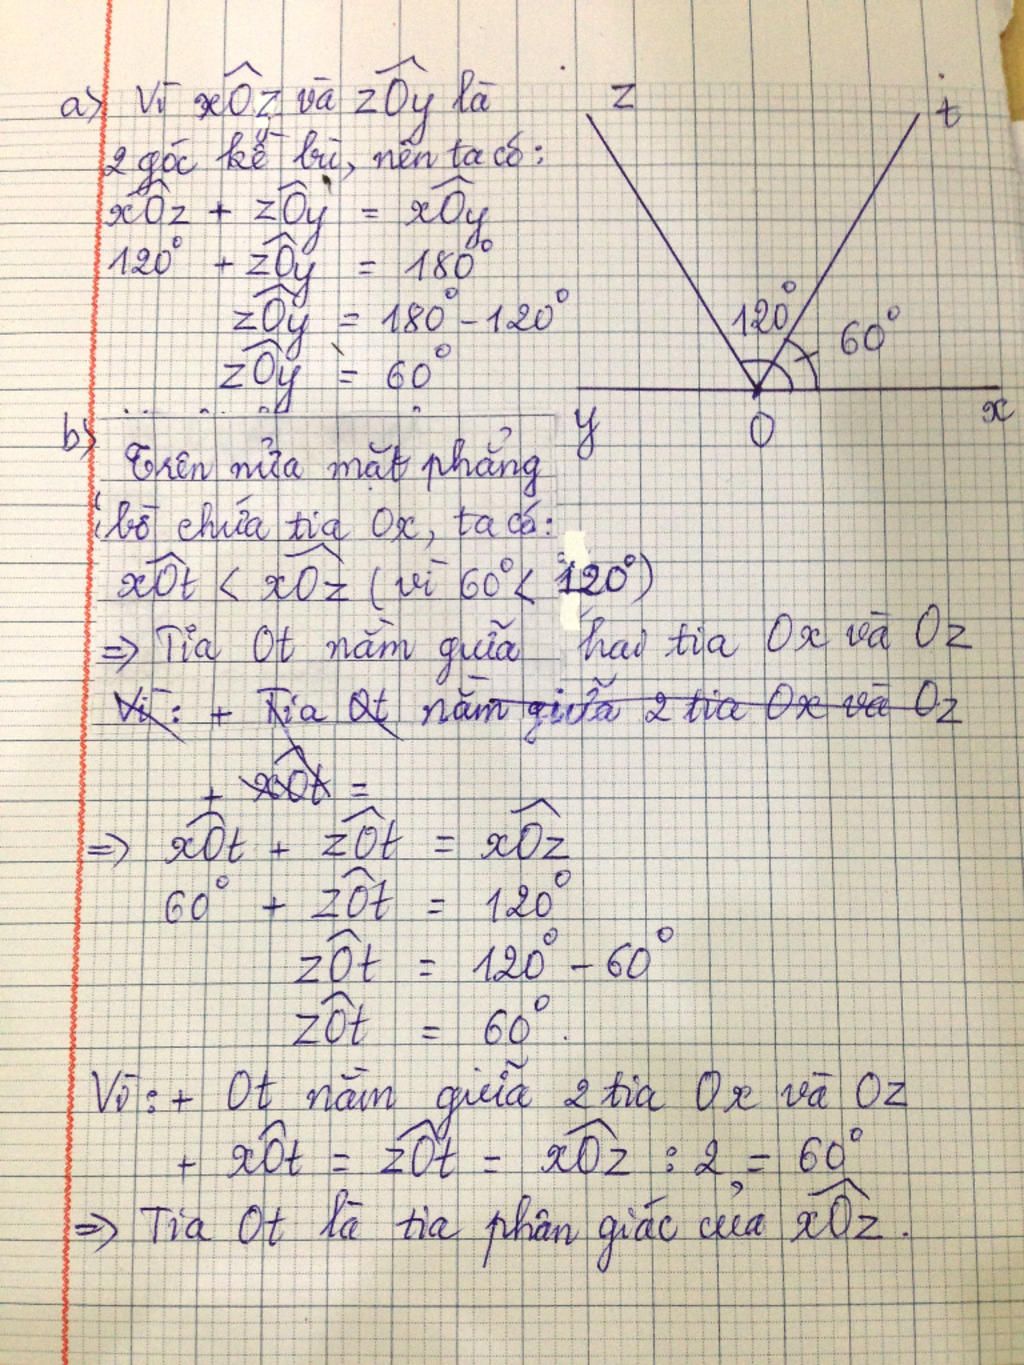 a) Vì xÔz và zÔy là
2 góc kề bù, nên ta có:
xÔz + zÔy = xÔy
120° + zÔy = 180°
zÔy = 180° - 120°
zÔy = 60°
z
t
120°
60°
y
O
x
b) Trên nửa mặt phẳng
bờ chứa tia Ox, ta có:
xÔt < xÔz (vì 60° < 120°)
=> Tia Ot nằm giữa hai tia Ox và Oz
Vì: + Tia Ot nằm giữa 2 tia Ox và Oz
+ xÔt =
=> xÔt + zÔt = xÔz
60° + zÔt = 120°
zÔt = 120° - 60°
zÔt = 60°.
Vì: + Ot nằm giữa 2 tia Ox và Oz
+ xÔt = zÔt = xÔz : 2 = 60°
=> Tia Ot là tia phân giác của xÔz.